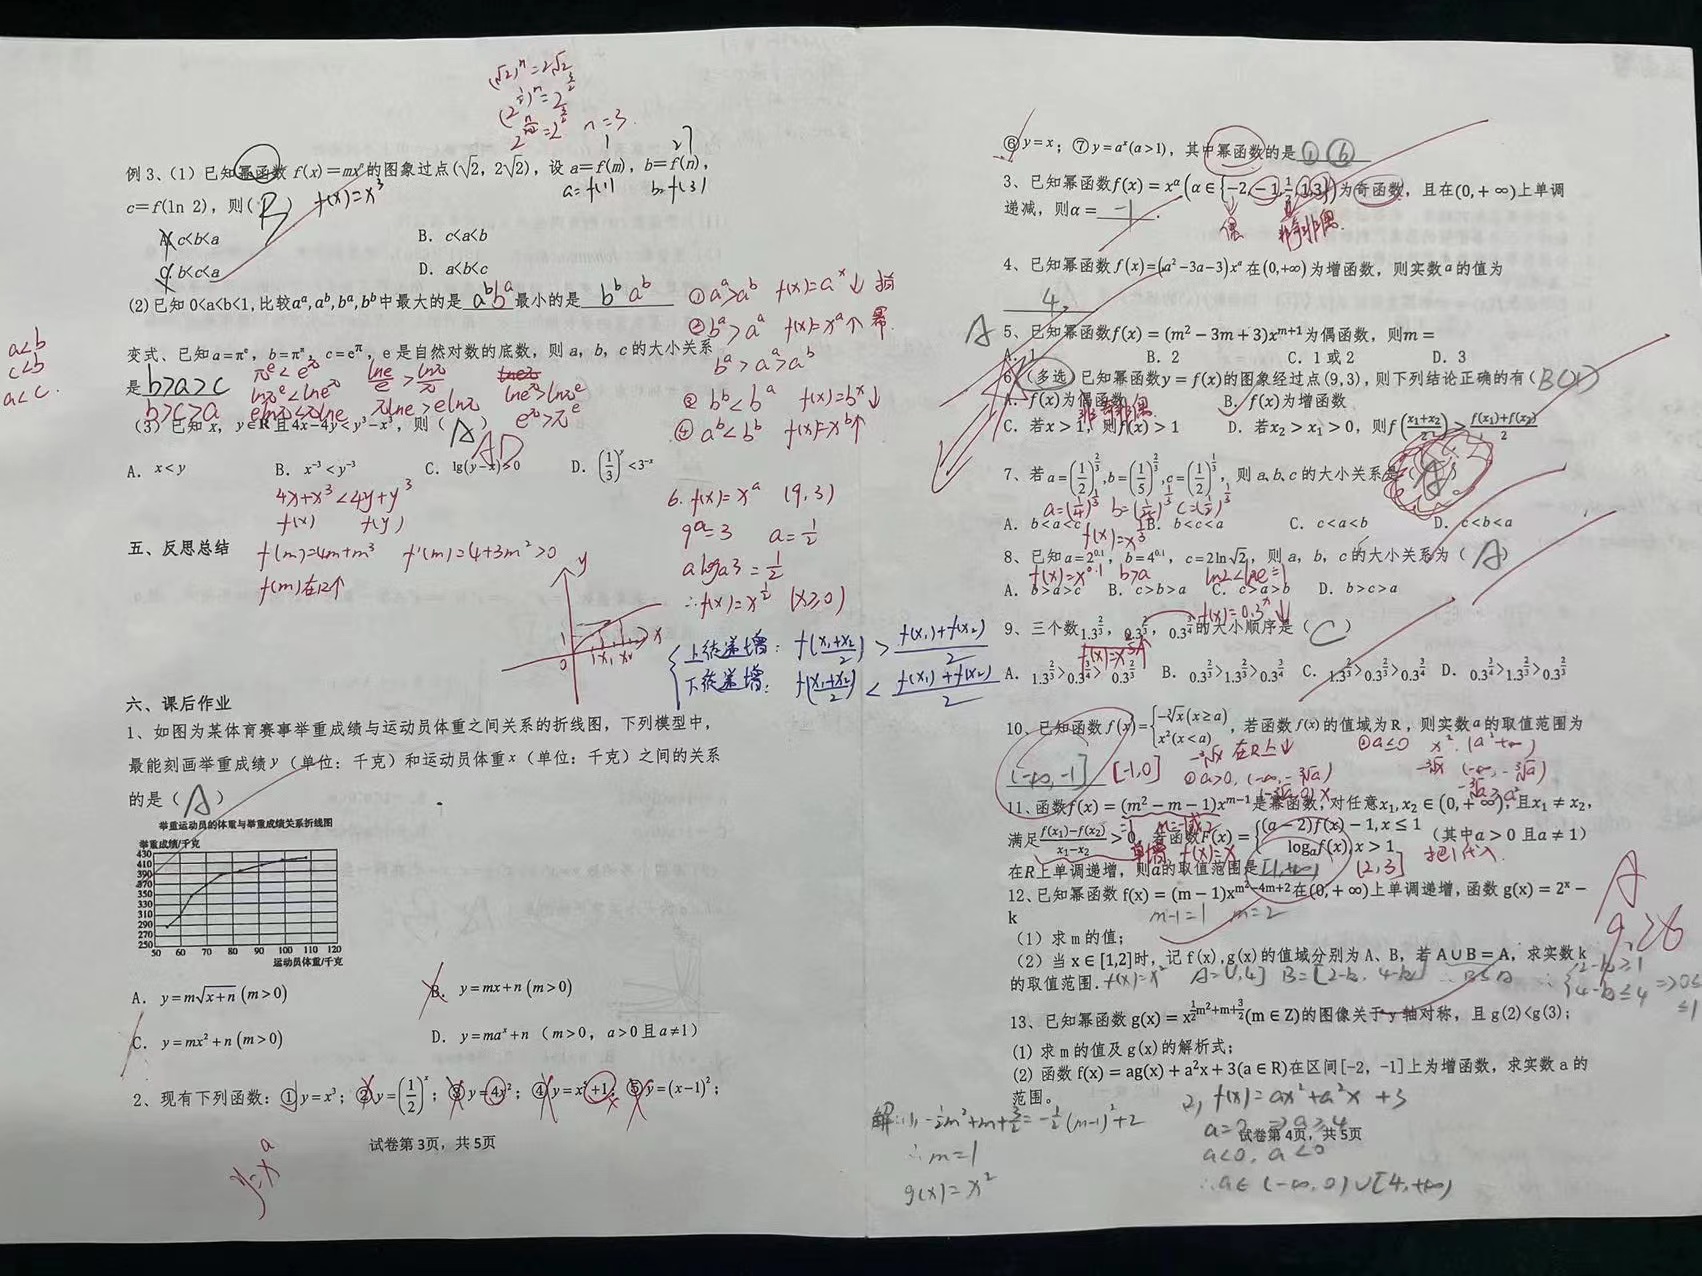 (√2)ⁿ=2√2
n=3
例3、(1) 已知幂函数 f(x)=mxⁿ的图象过点(√2, 2√2), 设 a=f(m), b=f(n),
a=f(1) b=f(3)
c=f(ln 2), 则( B ) f(x)=x³
A. c<b<a B. c<a<b
C. b<c<a D. a<b<c
(2)已知 0<a<b<1,比较aᵃ,aᵇ,bᵃ,bᵇ中最大的是 bᵃ 最小的是 aᵇ
①aᵃ>aᵇ f(x)=aˣ↓ 指
②bᵃ>aᵃ f(x)=xᵃ↑ 幂
bᵃ>aᵃ>aᵇ
③bᵇ<bᵃ f(x)=bˣ↓
④aᵇ<bᵇ f(x)=xᵇ↑
a<b
c<b
a<c.
变式、已知a=πᵉ, b=π^π, c=e^π, e是自然对数的底数, 则 a, b, c的大小关系
是 b>a>c
b>c>a
πᵉ<e^π
lnπᵉ<lne^π
elnπ<πlne
lne/e>lnπ/π
πlne>elnπ
lne^π>lnπᵉ
e^π>πᵉ
(3) 已知 x, y∈R且4x-4y<y³-x³, 则( A ) AD
A. x<y B. x⁻³<y⁻³ C. lg(y-x)>0 D. (1/3)ʸ<3⁻ˣ
4x+x³<4y+y³
f(x) f(y)
五、反思总结
f(m)=4m+m³ f'(m)=4+3m²>0
f(m)在R↑
6. f(x)=xᵃ (9,3)
9ᵃ=3 a=1/2
∴f(x)=x^(1/2) (x≥0)
上凸递增: f((x₁+x₂)/2) > (f(x₁)+f(x₂))/2
下凸递增: f((x₁+x₂)/2) < (f(x₁)+f(x₂))/2
六、课后作业
1、如图为某体育赛事举重成绩与运动员体重之间关系的折线图, 下列模型中,
最能刻画举重成绩y（单位: 千克）和运动员体重x（单位: 千克）之间的关系
的是( A )
举重运动员的体重与举重成绩关系折线图
举重成绩/千克
430
410
390
370
350
330
310
290
270
250
50 60 70 80 90 100 110 120
运动员体重/千克
A. y=m√(x+n) (m>0) B. y=mx+n (m>0)
C. y=mx²+n (m>0) D. y=maˣ+n （m>0, a>0且a≠1）
2、现有下列函数: ①y=x³; ②y=(1/2)ˣ; ③y=4x²; ④y=x⁵+1; ⑤y=(x-1)²;
y=xᵃ
试卷第 3页, 共 5页
⑥y=x; ⑦y=aˣ(a>1), 其中幂函数的是 ① ⑥
3、已知幂函数f(x)=x^α(α∈{-2,-1,1/2,1,3})为奇函数, 且在(0,+∞)上单调
递减, 则α= -1 .
偶 非奇非偶
4、已知幂函数f(x)=(a²-3a-3)xᵃ在(0,+∞)为增函数, 则实数a的值为
4.
A
5、已知幂函数f(x)=(m²-3m+3)x^(m+1)为偶函数, 则m=
A. 1 B. 2 C. 1或2 D. 3
6、(多选) 已知幂函数y=f(x)的图象经过点(9,3), 则下列结论正确的有( BCD )
A. f(x)为偶函数 B. f(x)为增函数
非奇非偶
C. 若x>1, 则f(x)>1 D. 若x₂>x₁>0, 则f((x₁+x₂)/2)>(f(x₁)+f(x₂))/2
7、若a=(1/2)^(2/3),b=(1/5)^(2/3),c=(1/2)^(1/3), 则a,b,c的大小关系是( A )
a=(1/4)^(1/3) c=(1/2)^(1/3)
f(x)=x^(1/3)
A. b<a<c B. b<c<a C. c<a<b D. c<b<a
8、已知a=2^0.1, b=4^0.1, c=2ln√2, 则 a, b, c的大小关系为( A )
f(x)=x^0.1 b>a ln2<lne=1
A. b>a>c B. c>b>a C. c>a>b D. b>c>a
f(x)=0.3ˣ↓
9、三个数1.3^(2/3), 0.3^(2/3), 0.3^(3/4)的大小顺序是( C )
f(x)=x^(2/3)↑
A. 1.3^(2/3)>0.3^(3/4)>0.3^(2/3) B. 0.3^(2/3)>1.3^(2/3)>0.3^(3/4) C. 1.3^(2/3)>0.3^(2/3)>0.3^(3/4) D. 0.3^(3/4)>1.3^(2/3)>0.3^(2/3)
10、已知函数f(x)={-∛x(x≥a), x²(x<a), 若函数f(x)的值域为R, 则实数a的取值范围为
(-∞,-1] [-1,0]
-∛x 在R上↓
①a≤0 x²
-∛x (-∞,-∛a)
11、函数f(x)=(m²-m-1)x^(m-1)是幂函数,对任意x₁,x₂∈(0,+∞),且x₁≠x₂,
满足(f(x₁)-f(x₂))/(x₁-x₂)>0, 若函数F(x)={(a-2)f(x)-1,x≤1, logₐf(x),x>1 (其中a>0且a≠1)
m=-1或2
单增 f(x)=x 把1代入
在R上单调递增, 则a的取值范围是 [1,+∞) (2,3]
12、已知幂函数 f(x)=(m-1)x^(m²-4m+2)在(0,+∞)上单调递增, 函数g(x)=2ˣ-
k
m-1=1 m=2
（1）求 m 的值;
（2）当 x∈[1,2]时, 记 f(x),g(x)的值域分别为 A、B, 若A∪B=A, 求实数k
的取值范围.
f(x)=x² A=[1,4] B=[2-k, 4-k] ∴B⊆A ∴{2-k≥1, 4-k≤4 ⇒0≤
≤1
A
9.26
13、已知幂函数g(x)=x^(-1/2m²+m+3/2)(m∈Z)的图像关于y轴对称, 且g(2)<g(3);
(1) 求 m 的值及 g(x)的解析式;
(2) 函数f(x)=ag(x)+a²x+3(a∈R)在区间[-2, -1]上为增函数, 求实数 a 的
范围。
解:(1) -1/2m²+m+3/2=-1/2(m-1)²+2
∴m=1
g(x)=x²
2, f(x)=ax²+a²x+3
⇒a≥4
a<0, a<0
∴a∈(-∞,0)∪[4,+∞)
试卷第 4页, 共 5页